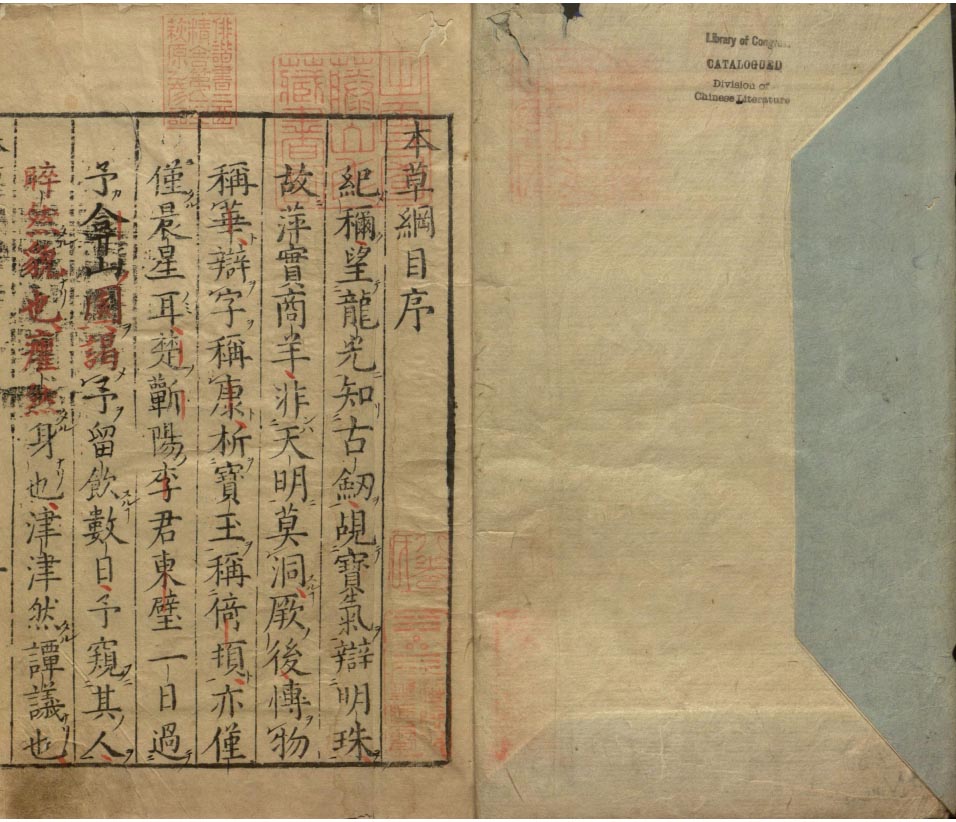 Library of Congress
CATALOGUED
Division of
Chinese Literature
本草綱目序
紀稱望龍光知古劒覘寶氣辯明珠
故萍實商羊非天明莫洞厥後愽物
稱華辯字稱康析寶玉稱倚頓亦僅
僅晨星耳楚蘄陽李君東璧一日過
予弇山園謁予留飲數日予窺其人
睟然貌也癯然身也津津然譚議也